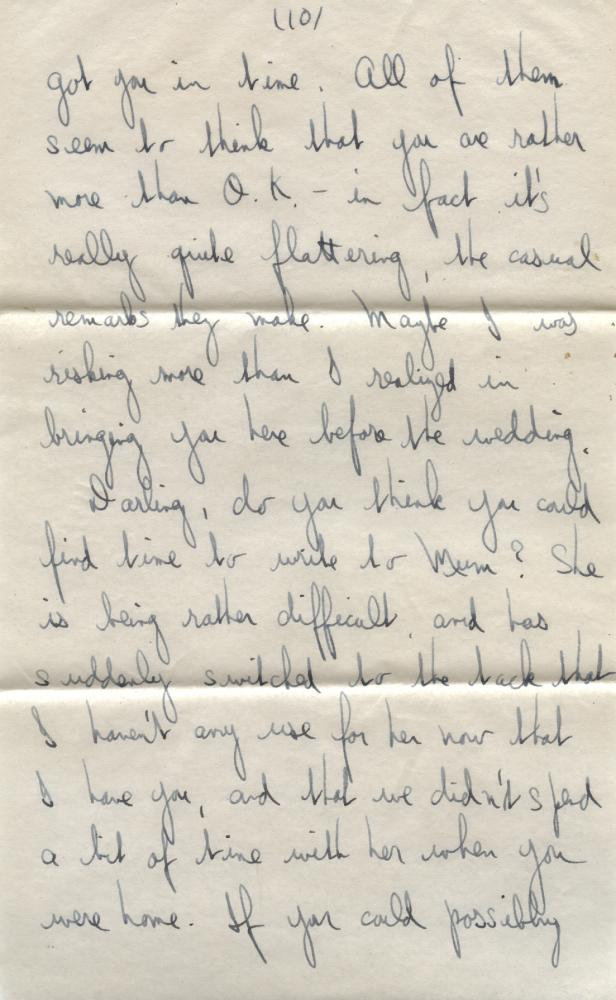 (10)
got you in time. All of them
seem to think that you are rather
more than O.K. - in fact it's
really quite flattering, the casual
remarks they make. Maybe I was
risking more than I realized in
bringing you here before the wedding.
Darling, do you think you could
find time to write to Mum? She
is being rather difficult, and has
suddenly switched to the tack that
I haven't any use for her now that
I have you, and that we didn't spend
a bit of time with her when you
were home. If you could possibly